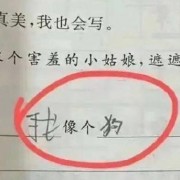 真美，我也会写。
个害羞的小姑娘，遮遮
像个狗